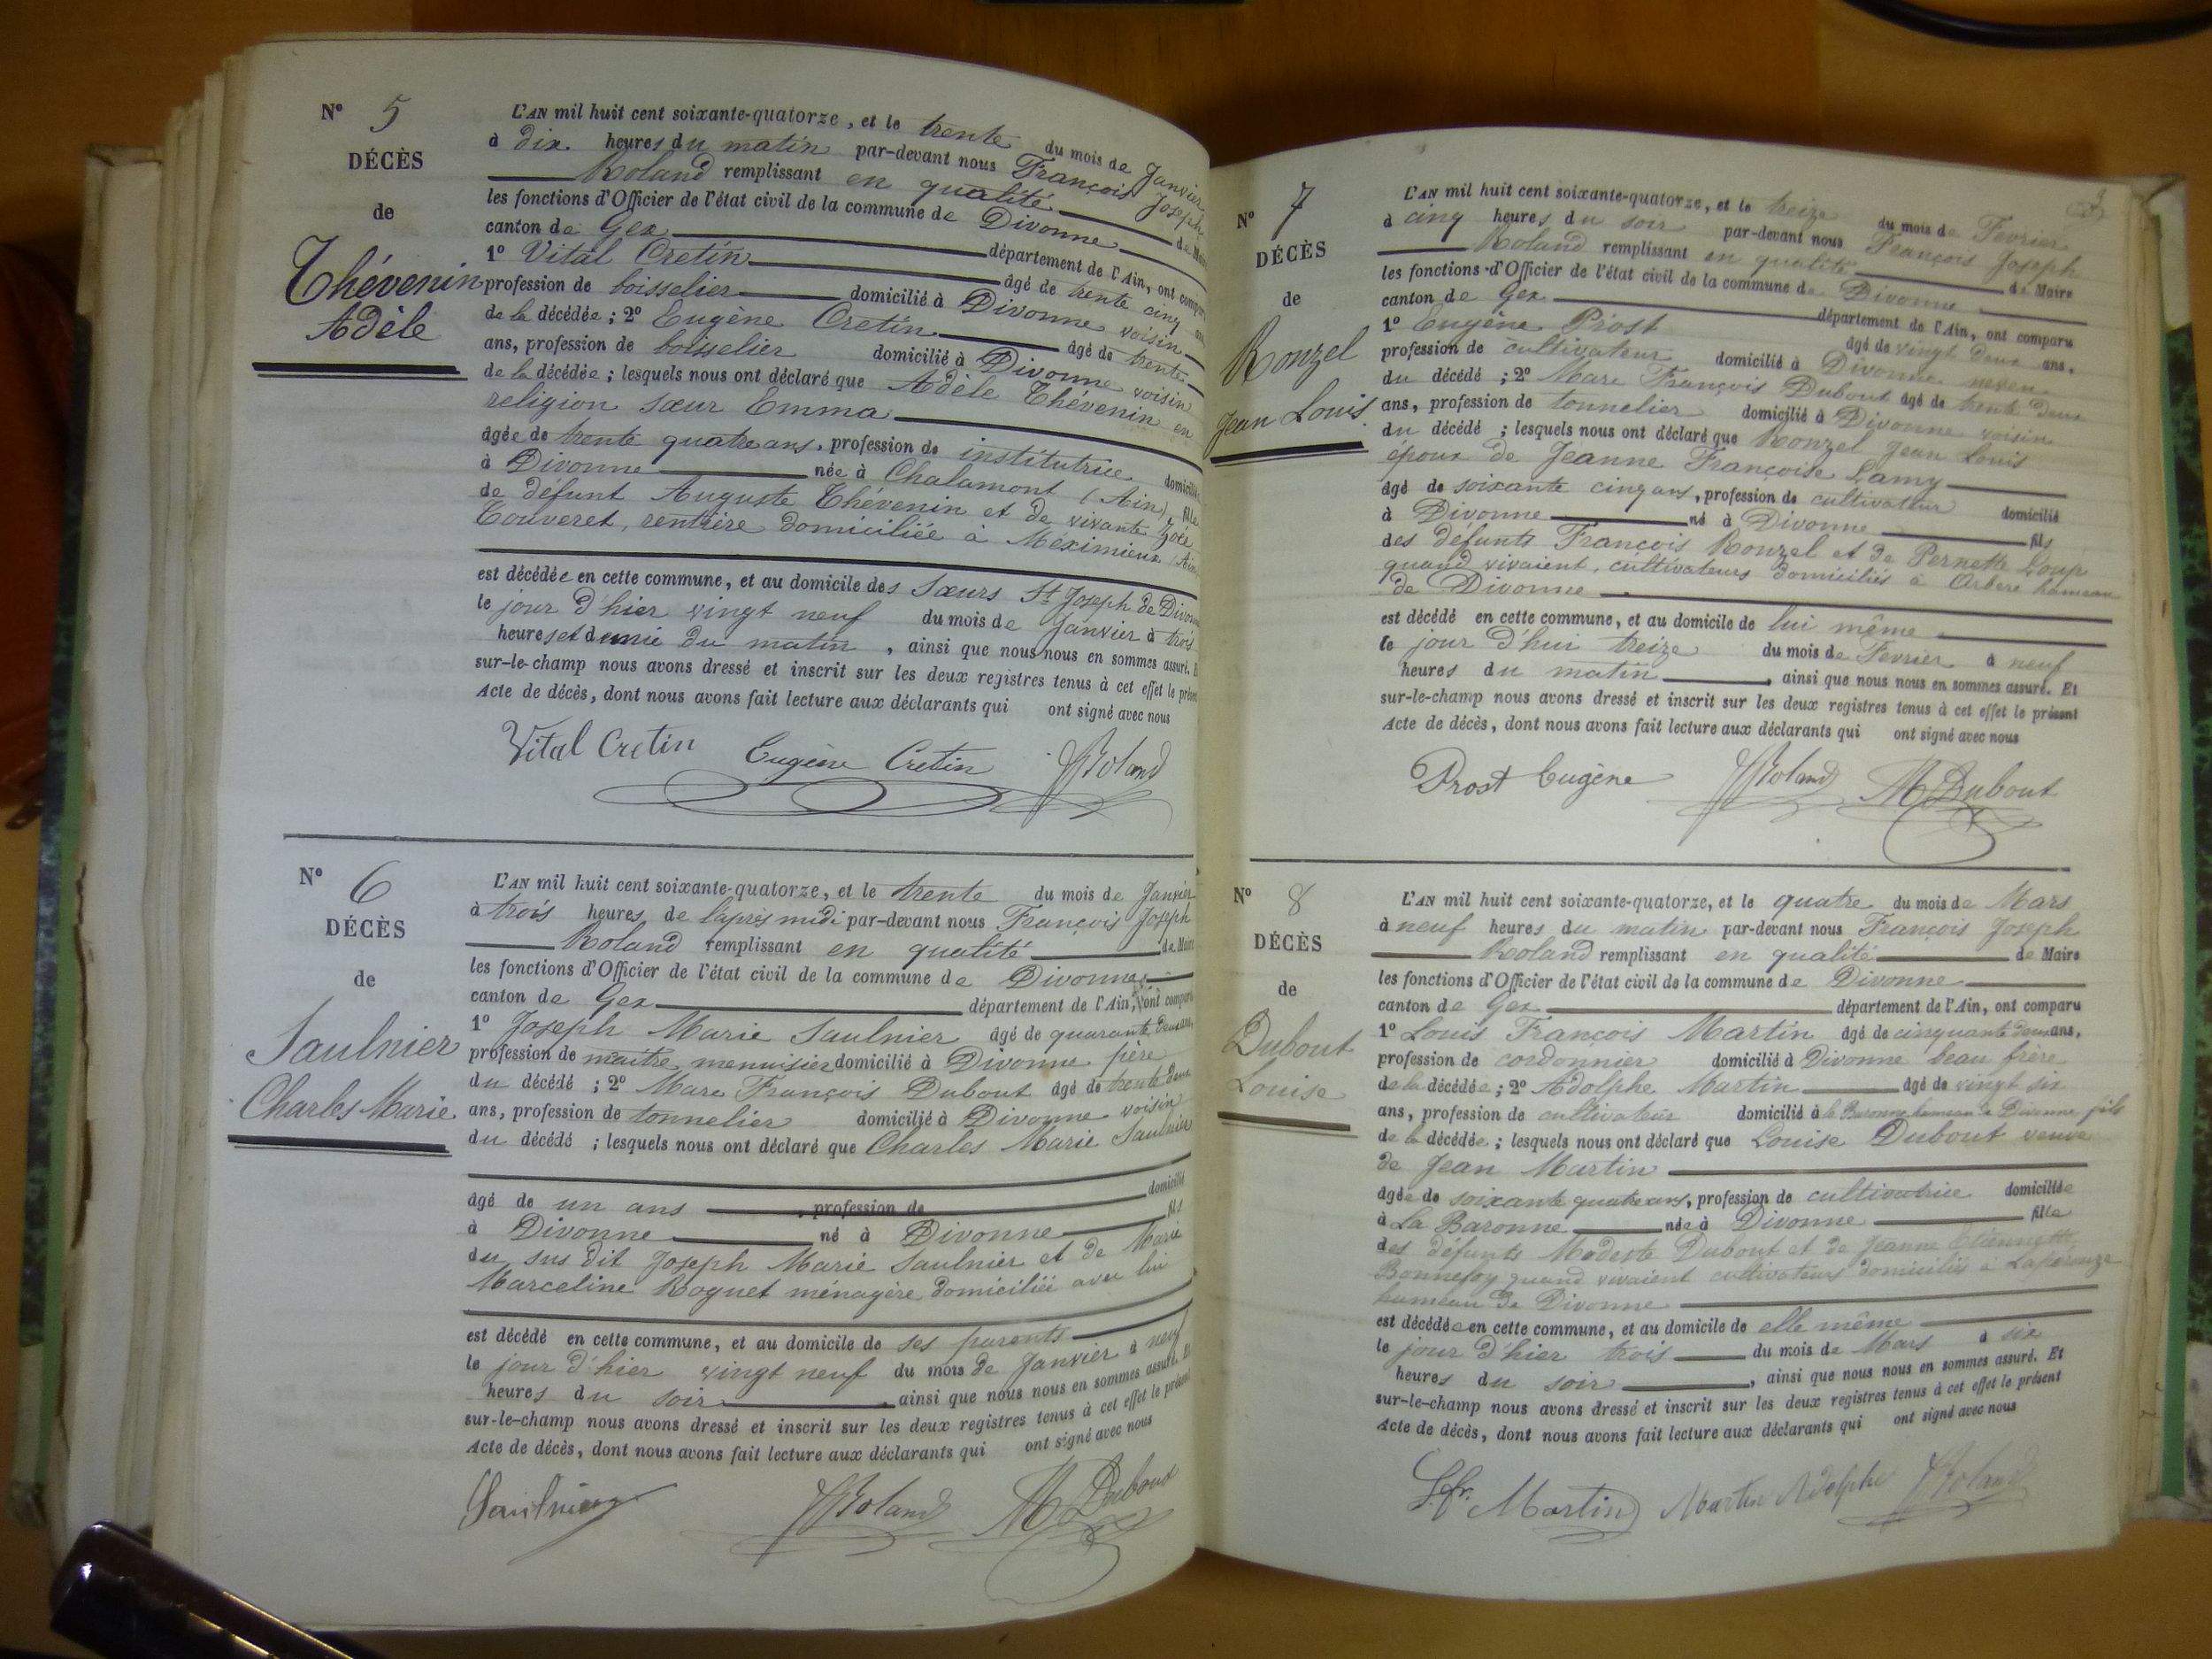 N° 5
DÉCÈS
de
Thévenin
Adèle
L'AN mil huit cent soixante-quatorze, et le trente du mois de Janvier
à dix heures du matin par-devant nous François Joseph
Roland remplissant en qualité de Maire
les fonctions d'Officier de l'état civil de la commune de Divonne
canton de Gex département de l'Ain, ont comparu
1° Vital Cretin âgé de trente cinq ans,
profession de boisselier domicilié à Divonne voisin
de la décédée ; 2° Eugène Cretin âgé de trente
ans, profession de boisselier domicilié à Divonne voisin
de la décédée ; lesquels nous ont déclaré que Adèle Thévenin en
religion sœur Emma
âgée de trente quatre ans, profession de institutrice domiciliée
à Divonne née à Chalamont (Ain), fille
de défunt Auguste Thévenin et de vivante Zoé
Touveret, rentière domiciliée à Méximieux (Ain
est décédée en cette commune, et au domicile des Sœurs St Joseph de Divonne
le jour d'hier vingt neuf du mois de Janvier à trois
heures et demie du matin, ainsi que nous nous en sommes assuré. Et
sur-le-champ nous avons dressé et inscrit sur les deux registres tenus à cet effet le présent
Acte de décès, dont nous avons fait lecture aux déclarants qui ont signé avec nous
Vital Cretin Eugène Cretin FJRoland
N° 6
DÉCÈS
de
Saulnier
Charles Marie
L'AN mil huit cent soixante-quatorze, et le trente du mois de Janvier
à trois heures de l'après midi par-devant nous François Joseph
Roland remplissant en qualité de Maire
les fonctions d'Officier de l'état civil de la commune de Divonne
canton de Gex département de l'Ain, ont comparu
1° Joseph Marie Saulnier âgé de quarante deux ans,
profession de maître menuisier domicilié à Divonne père
du décédé ; 2° Marc François Dubout âgé de trente deux
ans, profession de tonnelier domicilié à Divonne voisin
du décédé ; lesquels nous ont déclaré que Charles Marie Saulnier
âgé de un ans profession de domicilié
à Divonne né à Divonne fils
du sus dit Joseph Marie Saulnier et de Marie
Marceline Roguet ménagère domiciliée avec lui
est décédé en cette commune, et au domicile de ses parents
le jour d'hier vingt neuf du mois de Janvier à neuf
heures du soir, ainsi que nous nous en sommes assuré. Et
sur-le-champ nous avons dressé et inscrit sur les deux registres tenus à cet effet le présent
Acte de décès, dont nous avons fait lecture aux déclarants qui ont signé avec nous
Saulnier FJRoland M Dubout
N° 7
DÉCÈS
de
Ronzel
Jean Louis
L'AN mil huit cent soixante-quatorze, et le treize du mois de Fevrier
à cinq heures du soir par-devant nous François Joseph
Roland remplissant en qualité de Maire
les fonctions d'Officier de l'état civil de la commune de Divonne
canton de Gex département de l'Ain, ont comparu
1° Eugène Prost âgé de vingt deux ans,
profession de cultivateur domicilié à Divonne neveu
du décédé ; 2° Marc François Dubout âgé de trente deux
ans, profession de tonnelier domicilié à Divonne voisin
du décédé ; lesquels nous ont déclaré que Ronzel Jean Louis
époux de Jeanne Françoise Lamy
âgé de soixante cinq ans, profession de cultivateur domicilié
à Divonne né à Divonne fils
des défunts François Ronzel et de Pernette Loup
quand vivaient, cultivateurs domiciliés à Arbere hameau
de Divonne
est décédé en cette commune, et au domicile de lui même
le jour d'hui treize du mois de Fevrier à neuf
heures du matin, ainsi que nous nous en sommes assuré. Et
sur-le-champ nous avons dressé et inscrit sur les deux registres tenus à cet effet le présent
Acte de décès, dont nous avons fait lecture aux déclarants qui ont signé avec nous
Prost Eugène FJRoland M Dubout
N° 8
DÉCÈS
de
Dubout
Louise
L'AN mil huit cent soixante-quatorze, et le quatre du mois de Mars
à neuf heures du matin par-devant nous François Joseph
Roland remplissant en qualité de Maire
les fonctions d'Officier de l'état civil de la commune de Divonne
canton de Gex département de l'Ain, ont comparu
1° Louis François Martin âgé de cinquante deux ans,
profession de cordonnier domicilié à Divonne beau frère
de la décédée ; 2° Adolphe Martin âgé de vingt six
ans, profession de cultivateur domicilié à la Baronne hameau de Divonne fils
de la décédée ; lesquels nous ont déclaré que Louise Dubout veuve
de Jean Martin
âgée de soixante quatre ans, profession de cultivatrice domiciliée
à La Baronne née à Divonne fille
des défunts Modeste Dubout et de Jeanne Etiennette
Bonnefoy quand vivaient cultivateurs domiciliés à Lapérouze
hameau de Divonne
est décédée en cette commune, et au domicile de elle même
le jour d'hier trois du mois de Mars à six
heures du soir, ainsi que nous nous en sommes assuré. Et
sur-le-champ nous avons dressé et inscrit sur les deux registres tenus à cet effet le présent
Acte de décès, dont nous avons fait lecture aux déclarants qui ont signé avec nous
L. fr. Martin Martin Adolphe FJRoland